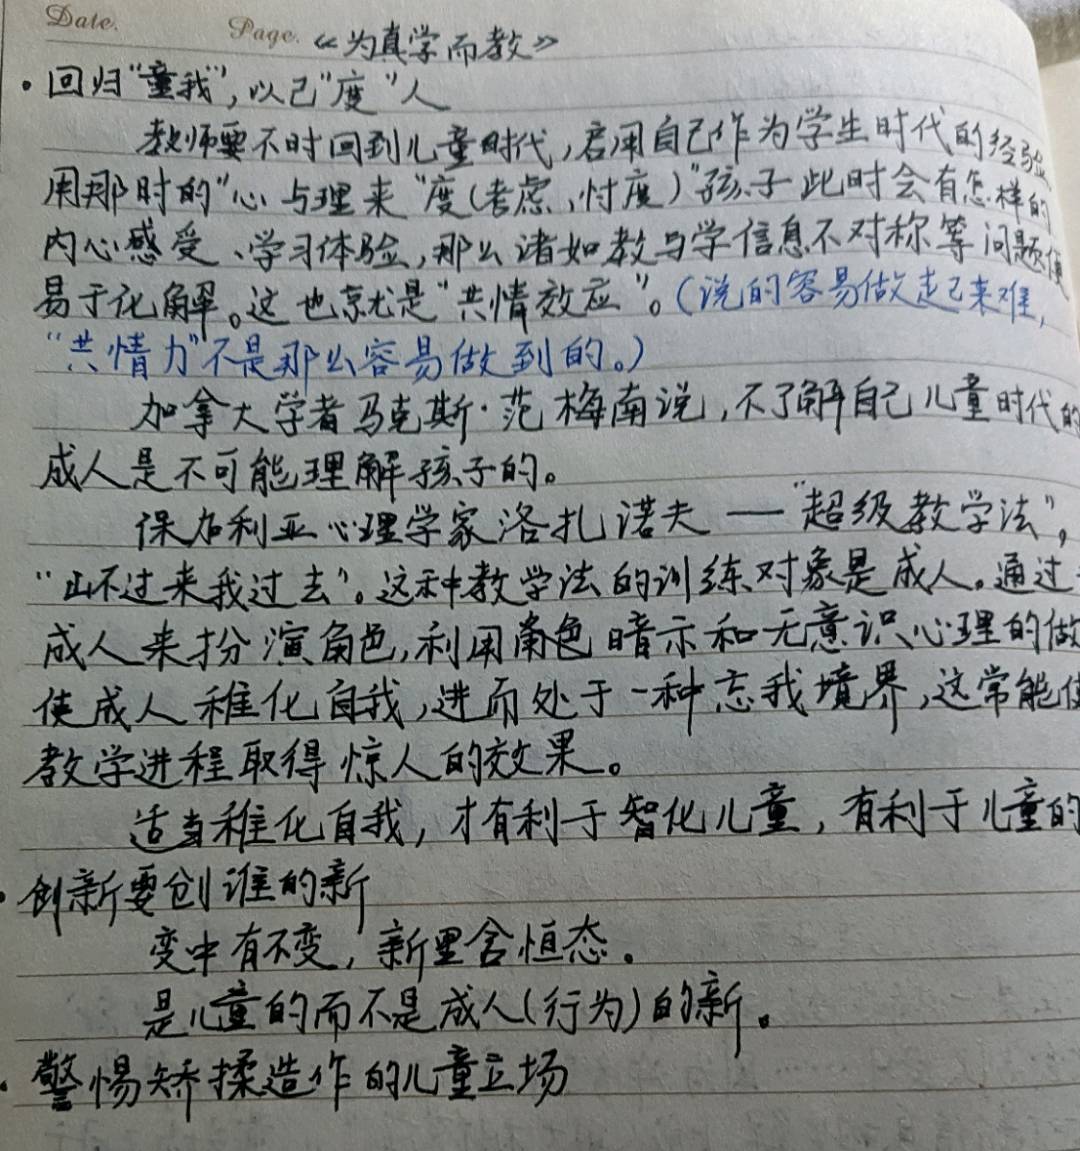 Date.
Page. 《为真学而教》
·回归"童我",以己"度"人
教师要不时回到儿童时代,启用自己作为学生时代的经验
用那时的"心与理来"度(考虑、忖度)"孩子此时会有怎样的
内心感受、学习体验,那么诸如教与学信息不对称等问题便
易于化解。这也就是"共情效应"。(说的容易做起来难,
"共情力"不是那么容易做到的。)
加拿大学者马克斯·范梅南说,不了解自己儿童时代的
成人是不可能理解孩子的。
保加利亚心理学家洛扎诺夫——"超级教学法",
"山不过来我过去"。这种教学法的训练对象是成人。通过
成人来扮演角色,利用角色暗示和无意识心理的做
使成人稚化自我,进而处于一种忘我境界,这常能使
教学进程取得惊人的效果。
适当稚化自我,才有利于智化儿童,有利于儿童的
·创新要创谁的新
变中有不变,新里含恒态。
是儿童的而不是成人(行为)的新。
·警惕矫揉造作的儿童立场